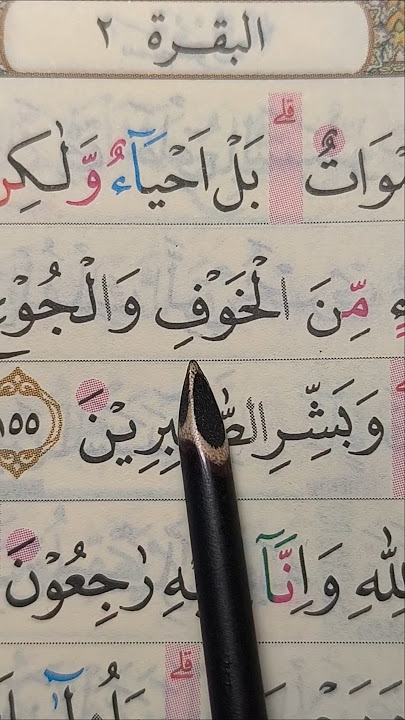 البقرة ٢
اَمْوَاتٌ ۗ قلے بَلْ اَحْيَاۤءٌ وَّلٰكِنْ
مِّنَ الْخَوْفِ وَالْجُوْعِ
وَبَشِّرِ الصّٰبِرِيْنَ ١٥٥
لِلّٰهِ وَاِنَّآ رٰجِعُوْنَ
قلے